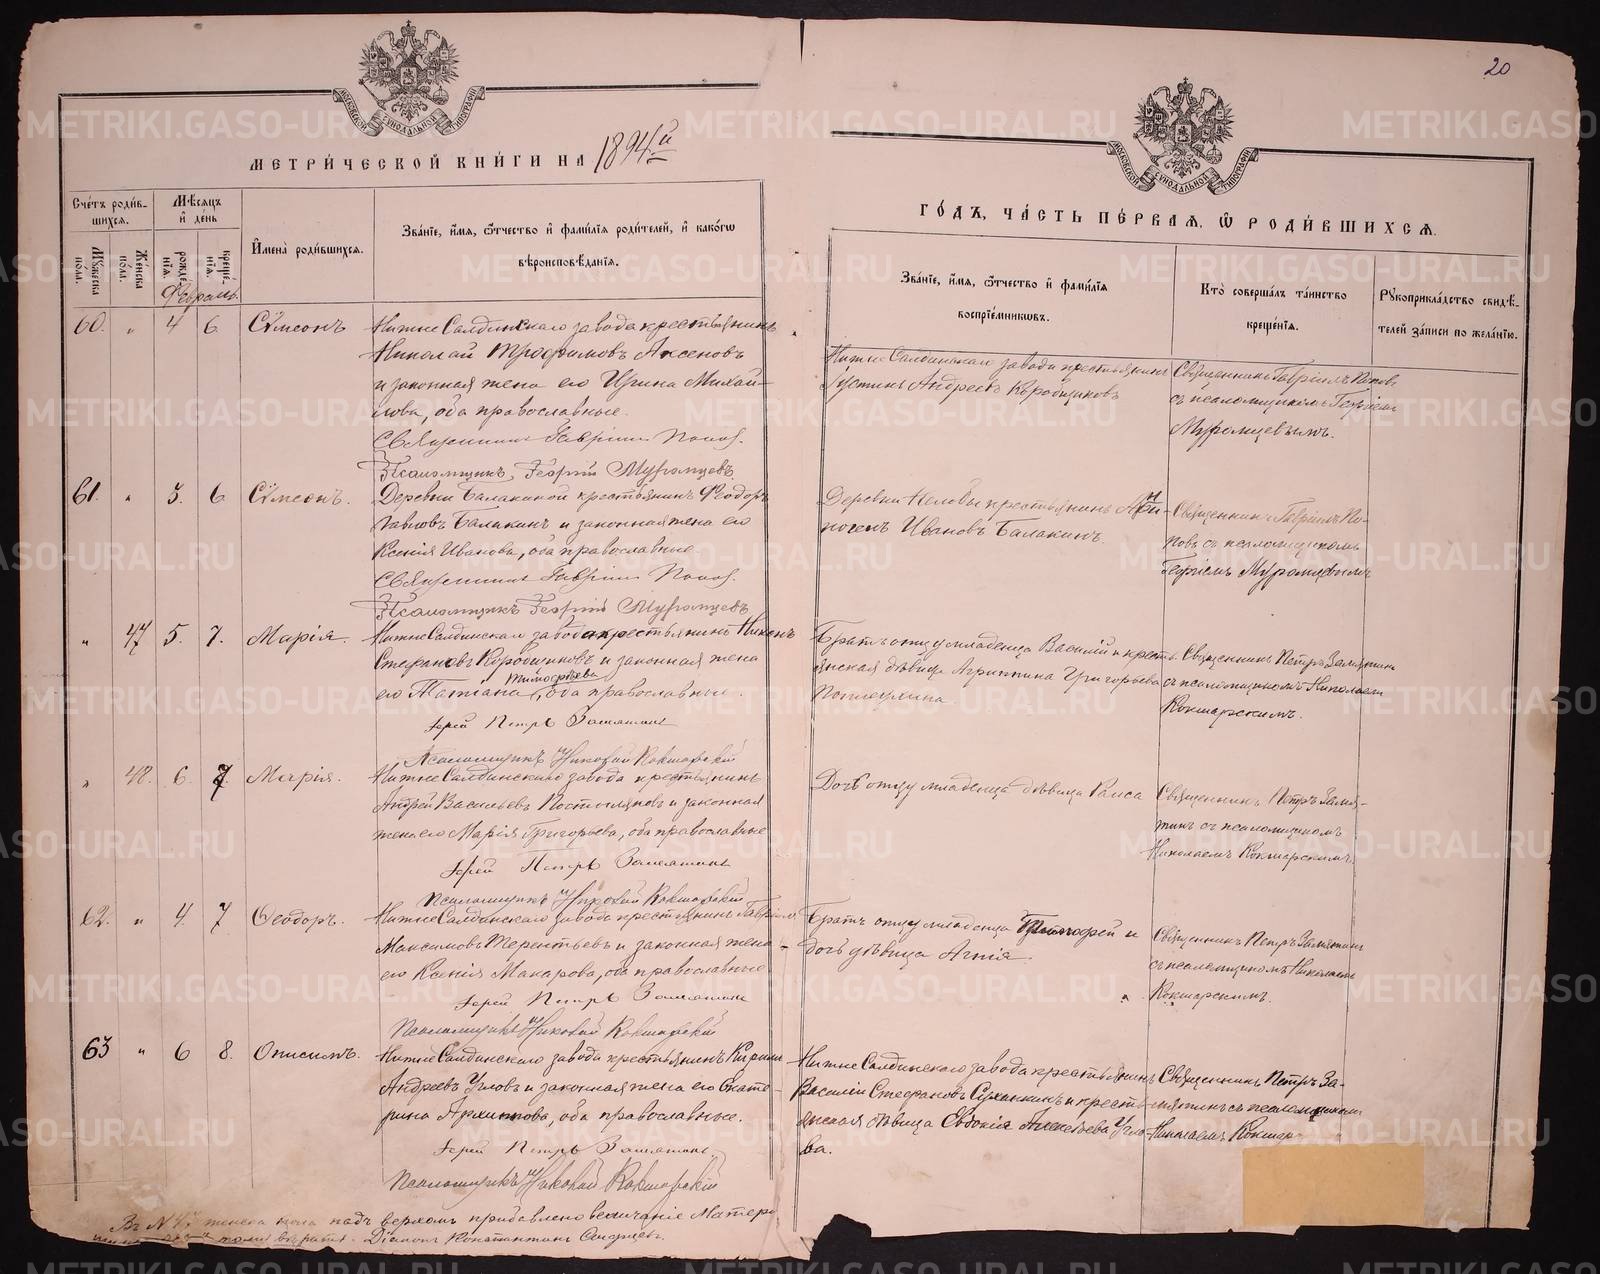 20
МОСКОВСКОЙ СУНОДАЛЬНОЙ ТИПОГРАФІИ
МОСКОВСКОЙ СУНОДАЛЬНОЙ ТИПОГРАФІИ
МЕТРИ́ЧЕСКОЙ КНИ́ГИ НА 1894й
ГО́ДЪ, ЧА́СТЬ ПЕ́РВАЯ, Ѡ РОДИ́ВШИХСЯ.
Сче́тъ роди́в-
шихся.
Мꙋжеска по́ла.
Же́нска по́ла.
Мѣ́сяцъ и де́нь
рожде́нїя.
креще́нїя.
Февраль.
И҆мена̀ роди́вшихся.
Зва́нїе, и҆́мя, ѻ҆́тчество и҆ фами́лїя роди́телей, и҆ како́гѡ
вѣроисповѣ́данїя.
Зва́нїе, и҆́мя, ѻ҆́тчество и҆ фами́лїя
воспрїе́мниковъ.
Кто̀ соверша́лъ та́инство
креще́нїя.
Рꙋкоприкла́дство свидѣ́-
телей за́писи по жела́нїю.
60. " 4 6. Сѵмеонъ
Нижне Салдинскаго завода крестьянинъ
Николай Трофимовъ Аксеновъ
и законная жена его Ирина Михай-
лова, оба православные.
Священникъ Гавріилъ Поповъ.
Псаломщикъ Георгій Муромцевъ
Нижне Салдинскаго завода крестьянинъ
Іустинъ Андреевъ Коробщиковъ
Священникъ Гавріилъ Поповъ
съ псаломщикомъ Георгіемъ
Муромцевымъ.
61. " 3. 6 Сѵмеонъ.
Деревни Балакиной крестьянинъ Ѳеодоръ
Павловъ Балакинъ и законная жена его
Ксенія Иванова, оба православные
Священникъ Гавріилъ Поповъ.
Псаломщикъ Георгій Муромцевъ
Деревни крестьянинъ
Ивановъ Балакинъ.
Священникъ Гавріилъ По-
повъ съ псаломщикомъ
Георгіемъ Муромцевымъ
" 47 5. 7. Марія.
Нижне Салдинскаго завода крестьянинъ Никонъ
Стефановъ Коробщиковъ и законная жена
его Татіана Тимофѣева, оба православные.
Іерей Петръ Замятинъ
Псаломщикъ Николай Кокшарскій
Братъ отцу младенца Василій и кресть-
янская дѣвица Агриппина Григорьева
Священникъ Петръ Замятинъ
съ псаломщикомъ Николаемъ
Кокшарскимъ.
" 48. 6. 7. Марія.
Нижне Салдинскаго завода крестьянинъ
Андрей Васильевъ Постоляковъ и законная
жена его Марія Григорьева, оба православные
Іерей Петръ Замятинъ
Псаломщикъ Николай Кокшарскій
Дочь отцу младенца дѣвица Раиса
Священникъ Петръ Замя-
тинъ съ псаломщикомъ
Николаемъ Кокшарскимъ.
62. " 4. 7 Ѳеодоръ.
Нижне Салдинскаго завода крестьянинъ Гавріилъ
Максимовъ Терентьевъ и законная жена
его Ксенія Макарова, оба православные
Іерей Петръ Замятинъ
Псаломщикъ Николай Кокшарскій
Братъ отцу младенца Тимофей и
дочь дѣвица Агнія.
Священникъ Петръ Замятинъ
съ псаломщикомъ Николаемъ
Кокшарскимъ.
63 " 6 8. Онисимъ.
Нижне Салдинскаго завода крестьянинъ Кирилл
Андреевъ Угловъ и законная жена его Екате-
рина Архипова, оба православные.
Іерей Петръ Замятинъ
Псаломщикъ Николай Кокшарскій
Нижне Салдинскаго завода крестьянинъ
Василій Стефановъ Суханкинъ и кресть-
янская дѣвица Евдокія Алексѣева Угло-
ва.
Священникъ Петръ За-
мятинъ съ псаломщикомъ
Николаемъ Кокшар
Въ № 47 женска пола надъ верхомъ прибавлено величаніе Матери
Діаконъ Константинъ
METRIKI.GASO-URAL.RU